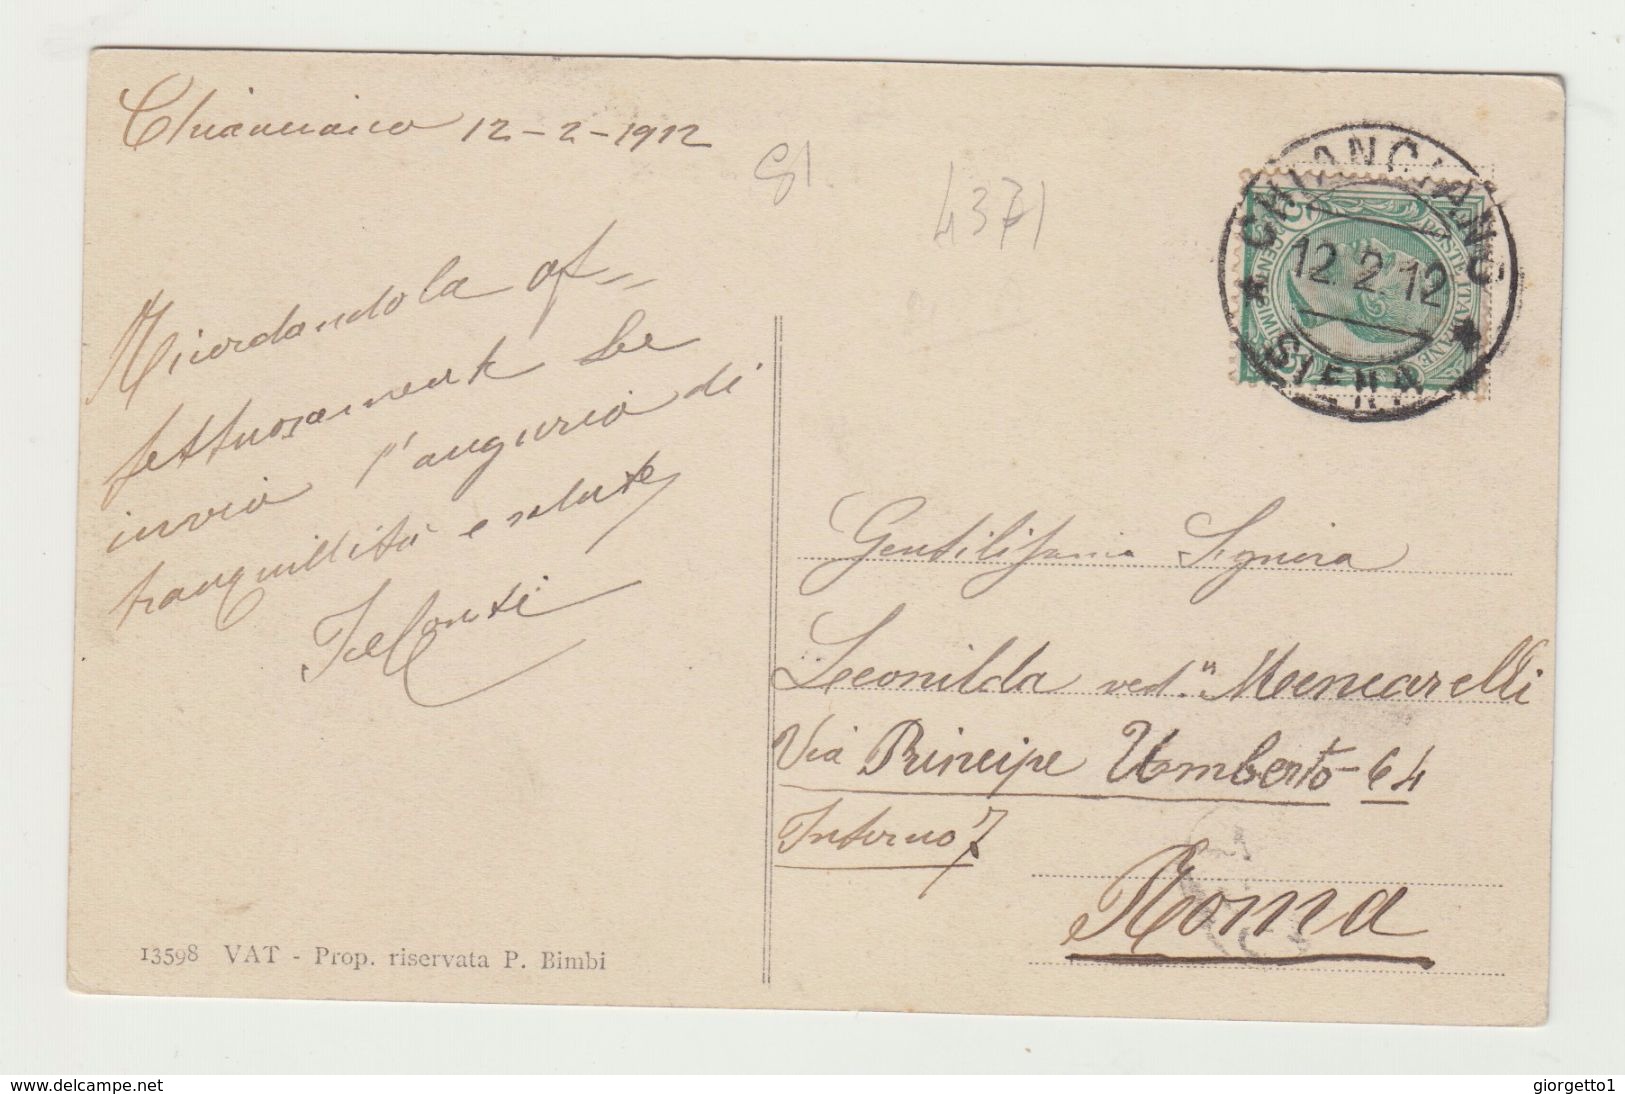 Chianciano 12-2-1912
4371
Ricordandola af=
fettuosamente Le
invio l'augurio di
tranquillità e salute
Conti
CHIANCIANO
12.2.12
SIENA
POSTE ITALIANE
Gentilissima Signora
Leonilda ved.ª Mencarelli
Via Principe Umberto-64
Interno 7
Roma
13598 VAT - Prop. riservata P. Bimbi
www.delcampe.net
giorgetto1